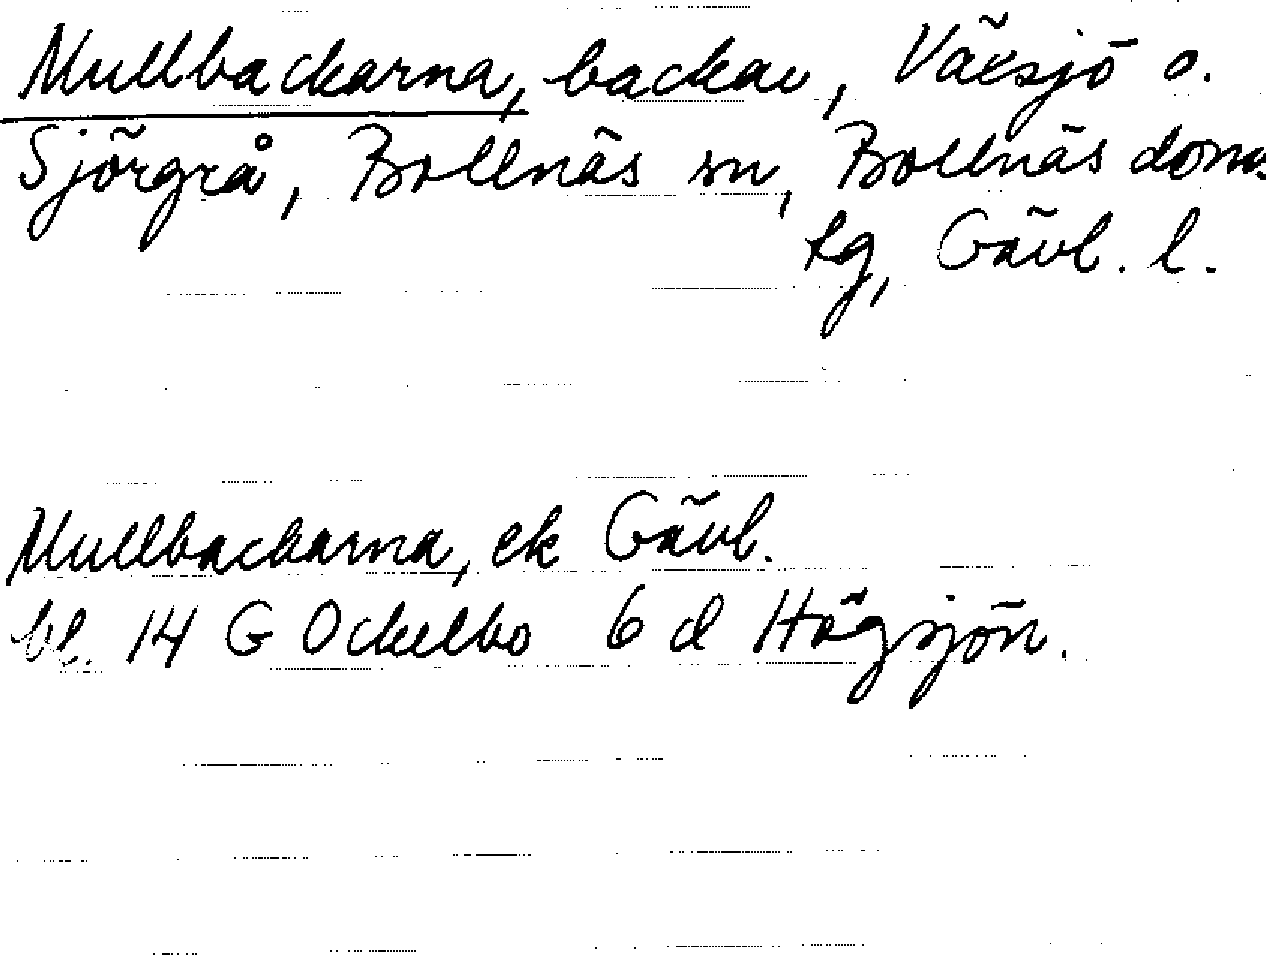 Mullbackarna, backar, Växsjö o.
Sjörgrå, Bollnäs sn, Bollnäs doms.
tg, Gävl. l.
Mullbackarna, ek Gävl.
bl. 14 G Ockelbo 6 d Högsjön.